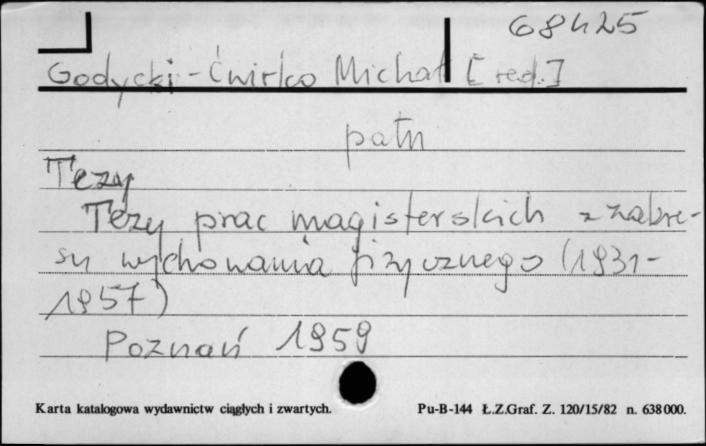 68425
Godycki-Ćwirko Michał [red.]
patrz
Tezy
Tezy prac magisterskich z zakre-
su wychowania fizycznego (1931-
1957)
Poznań 1959
Karta katalogowa wydawnictw ciągłych i zwartych.
Pu-B-144 Ł.Z.Graf. Z. 120/15/82 n. 638 000.